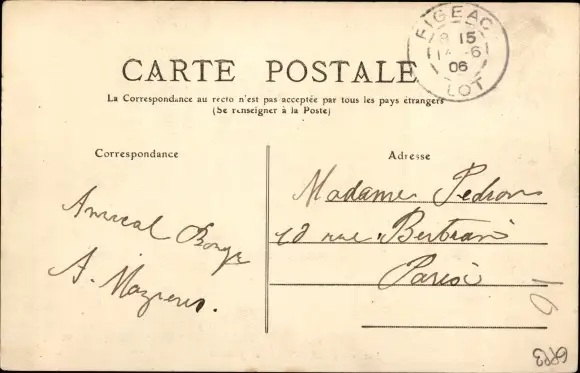 CARTE POSTALE
FIGEAC
8 15
6
06
LOT
La Correspondance au recto n'est pas acceptée par tous les pays étrangers
(Se renseigner à la Poste)
Correspondance
Adresse
Amical
A.
Madame Pedron
rue Bertrand
Paris